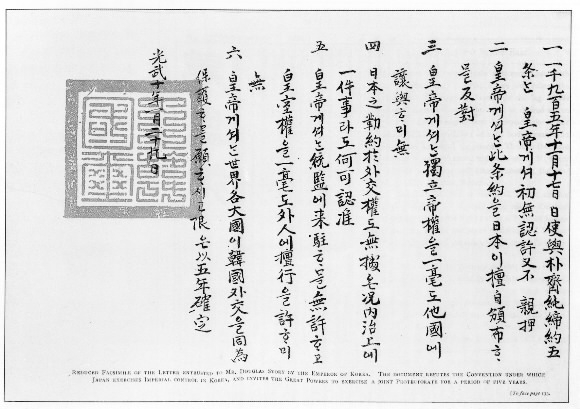 一 一千九百五年十一月十七日 日使與朴齊純締約五
條는 皇帝게셔 初無認許又不 親押
二 皇帝게셔는 此条約을 日本이 擅自頒布ᄒᆞᆷ
을 反對
三 皇帝게셔는 獨立帝權을 一毫도 他國에
讓與ᄒᆞ미 無
四 日本之勒約於外交權도 無據온 况内治上에
一件事라도 何可認准
五 皇帝게셔는 統監에 来駐ᄒᆞᆷ을 無許ᄒᆞ고
皇室權을 一毫도 外人에 擅行을 許ᄒᆞ미
無
六 皇帝게셔는 世界各大國이 韓國外交을 同為
保護ᄒᆞᆷ을 願ᄒᆞ시고 限은 以五年確定
光武十年一月二十九日
REDUCED FACSIMILE OF THE LETTER ENTRUSTED TO MR. DOUGLAS STORY BY THE EMPEROR OF KOREA. THE DOCUMENT REFUTES THE CONVENTION UNDER WHICH
JAPAN EXERCISES IMPERIAL CONTROL IN KOREA, AND INVITES THE GREAT POWERS TO EXERCISE A JOINT PROTECTORATE FOR A PERIOD OF FIVE YEARS.
[To face page